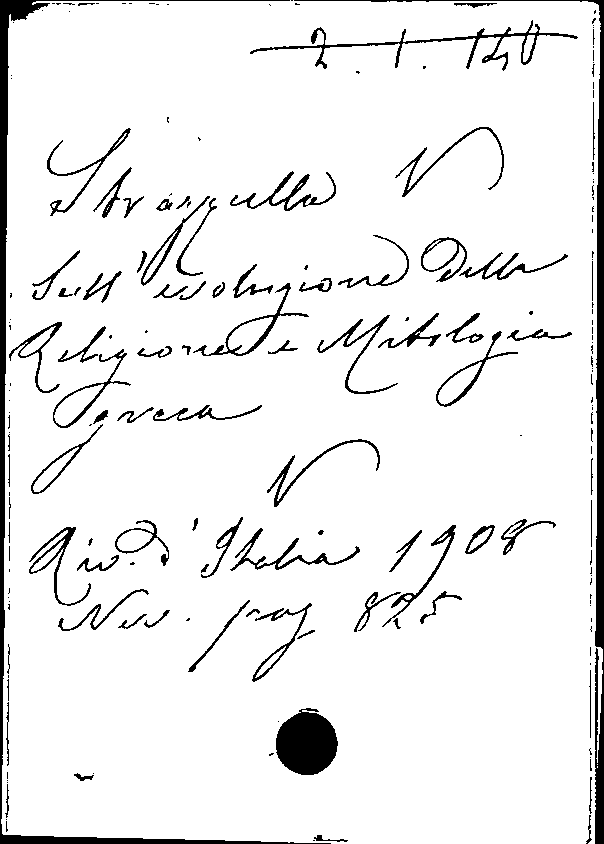 2.1.140
Strazzulla V
Sull'evoluzione della
Religione e Mitologia
greca
V
Riv. d'Italia 1908
Nov. pag 825